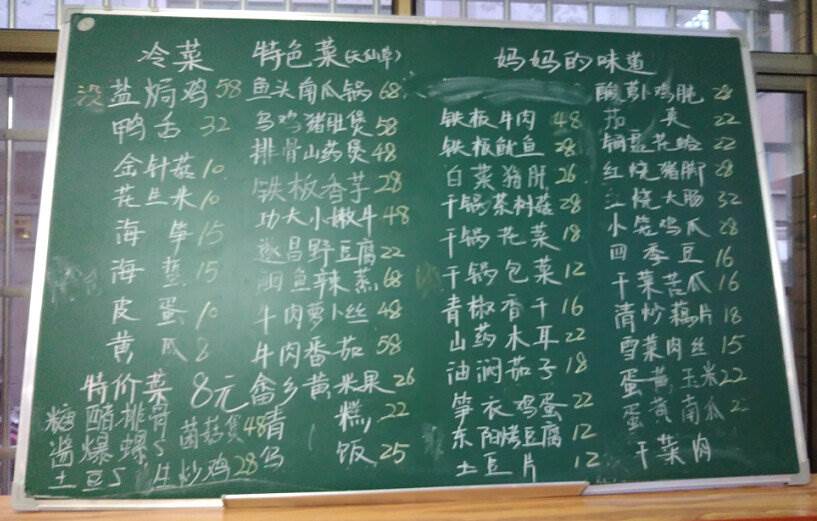 冷菜
没 盐焗鸡 58
鸭舌 32
金针菇 10
花生米 10
海笋 15
海蜇 15
皮蛋 10
黄瓜 8
特价菜 8元
糖醋排骨
酱爆螺S
土豆S
菌菇煲 48
生炒鸡 28
特色菜(天仙草)
鱼头南瓜锅 68
乌鸡猪肚煲 58
排骨山药煲 48
铁板香芋 28
功夫小嫩牛 48
遂昌野豆腐 22
鱼辣蒸 68
牛肉萝卜丝 48
牛肉番茄 58
畲乡黄米果 26
青 糕, 22
乌 饭 25
妈妈的味道
铁板牛肉 48
铁板鱿鱼 28
白菜猪肝 26
干锅茶树菇 28
干锅花菜 18
干锅包菜 12
青椒香干 16
山药木耳 22
油焖茄子 18
笋衣鸡蛋 22
东阳烤豆腐 12
土豆片 12
酸萝卜鸡胗 28
22
花蛤 22
红烧猪脚 28
红烧大肠 32
小炒鸡爪 28
四季豆 16
干菜苦瓜 16
清炒藕片 18
雪菜肉丝 15
蛋黄玉米 22
蛋黄南瓜
干菜肉